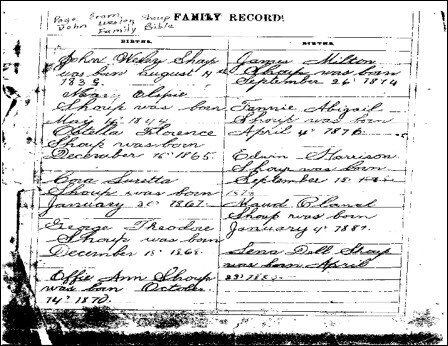 Page from
John Wesley Shoup
Family Bible
FAMILY RECORD.
BIRTHS.
John Wesly Shoup
was born August 4th
1835
Mary
Shoup was born
May 14th 1844
Florence
Shoup was born
December 16th 1865.
Cora Suretta
Shoup was born
January 20th 1867.
George Theodore
Shoup was born
December 18th 1868.
Effie Ann Shoup
was born October
14th 1870.
BIRTHS.
James Milton
Shoup was born
September 26th 1874
Fannie Abigail
Shoup was born
April 4th 1876.
Edwin Harrison
Shoup was born
September 18th
Maud
Shoup was born
January 4th 1881.
Lena Dell Shoup
was born April